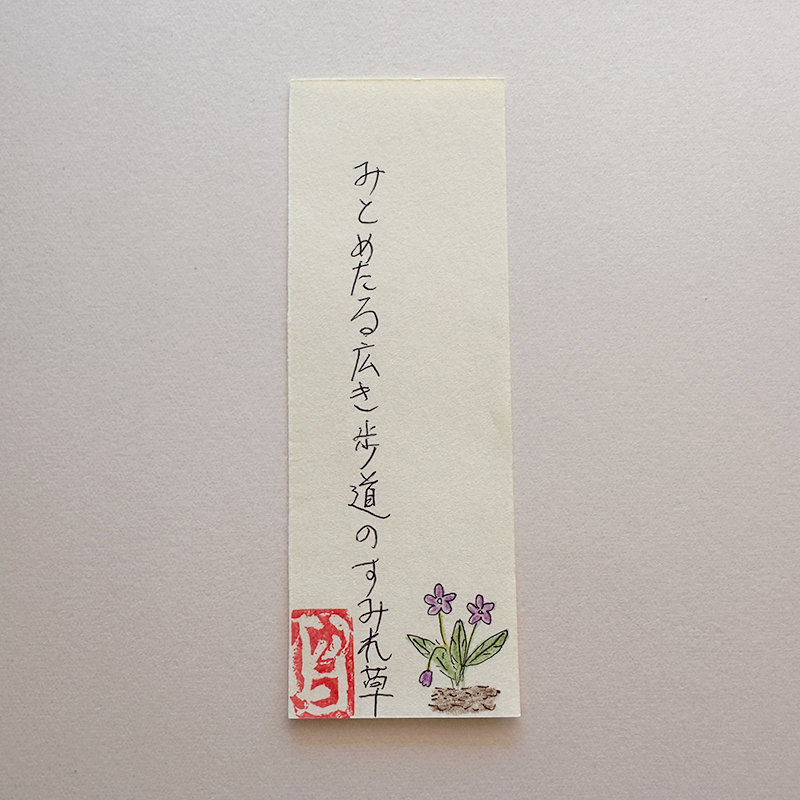 みとめたる広き歩道のすみれ草